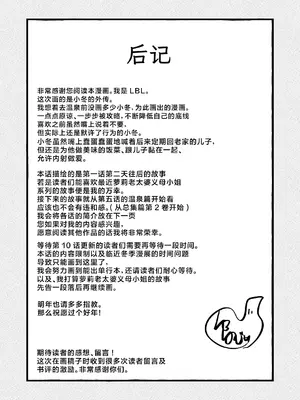 后记
非常感谢您阅读本漫画，我是 LBL。
这次画的是小冬的外传。
我想着去温泉前没画多少小冬、为此画出的漫画。
一点点原谅、一步步被攻略，不断降低自己的底线
喜欢之前虽然嘴上说着不要、
但实际上还是默许了行为的小冬。
小冬虽然嘴上蠢蛋蠢蛋地喊着后来定期回老家的儿子，
但还是为他做美味的饭菜、跟儿子黏在一起、
允许内射做爱。
本话描绘的是第一话第二天往后的故事
若是读者们能喜欢最近萝莉老太婆义母小姐
系列的故事便是我的万幸。
接下来的故事就从第五话的温泉篇开始看
应该也不会有违和感。（从总集篇第 2 卷开始）
我会将各话的简介放在下一页
您如果对我的内容感兴趣，
愿意阅读其他作品的话我将非常荣幸。
等待第 10 话更新的读者们需要再等待一段时间。
本话的内容限制以及临近冬季漫展的时间问题
导致只能画到这里了，
我会努力画到能出单行本，还请读者们耐心等待。
以及、我打算萝莉老太婆义母小姐的故事
先告一段落后再继续画。
明年也请多多指教。
那么祝愿过个好年！
期待读者的感想、留言！
这次在画稿子时收到很多次读者留言及
书评的激励。非常感谢你们。